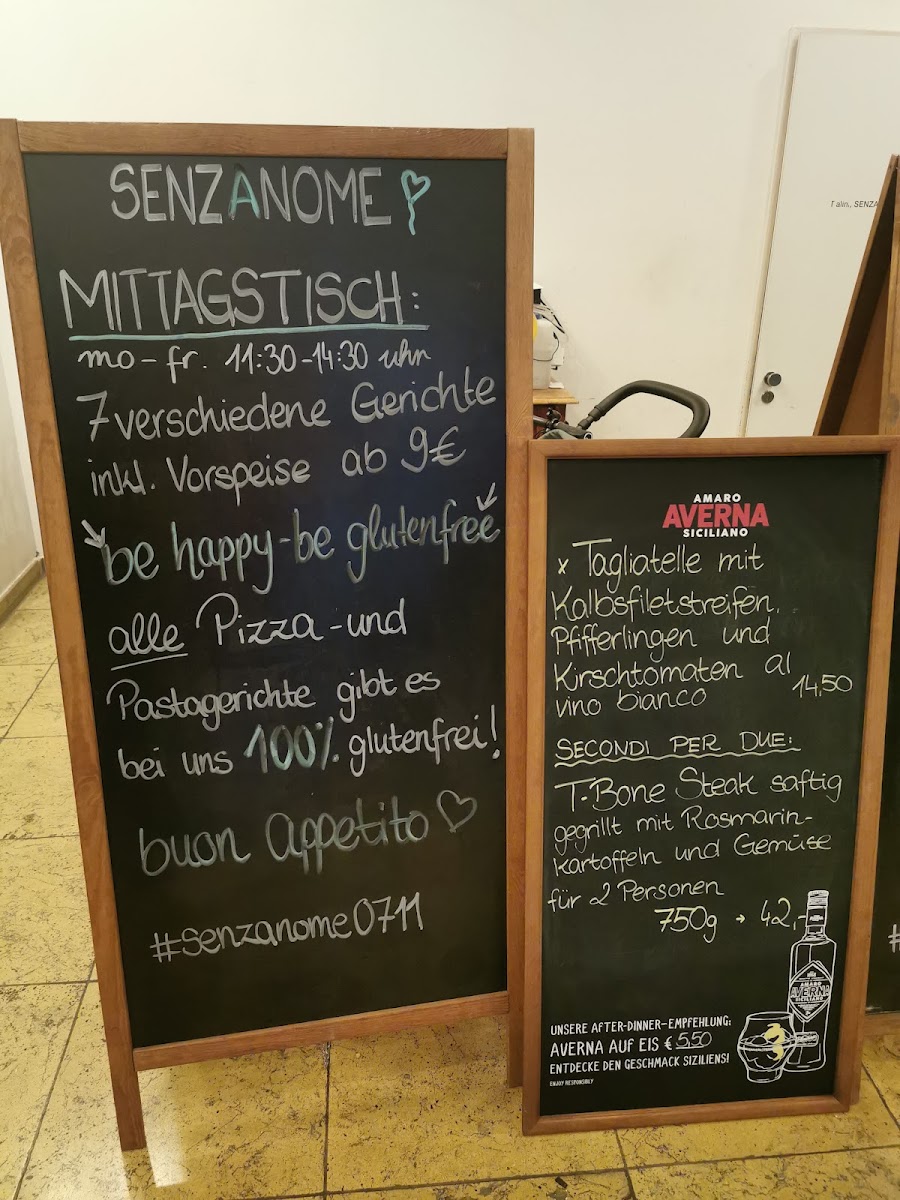 SENZANOME
MITTAGSTISCH:
mo-fr. 11:30-14:30 uhr
7 verschiedene Gerichte
inkl. Vorspeise ab 9€
be happy-be glutenfree
alle Pizza-und
Pastagerichte gibt es
bei uns 100% glutenfrei!
buon appetito
#senzanome0711
AMARO
AVERNA
SICILIANO
x Tagliatelle mit
Kalbsfiletstreifen,
Pfifferlingen und
Kirschtomaten al
vino bianco 14,50
SECONDI PER DUE:
T-Bone Steak saftig
gegrillt mit Rosmarin-
kartoffeln und Gemüse
für 2 Personen
750g → 42,-
AMARO
AVERNA
SICILIANO
UNSERE AFTER-DINNER-EMPFEHLUNG:
AVERNA AUF EIS € 5,50
ENTDECKE DEN GESCHMACK SIZILIENS!
ENJOY RESPONSIBLY
SENZA
#